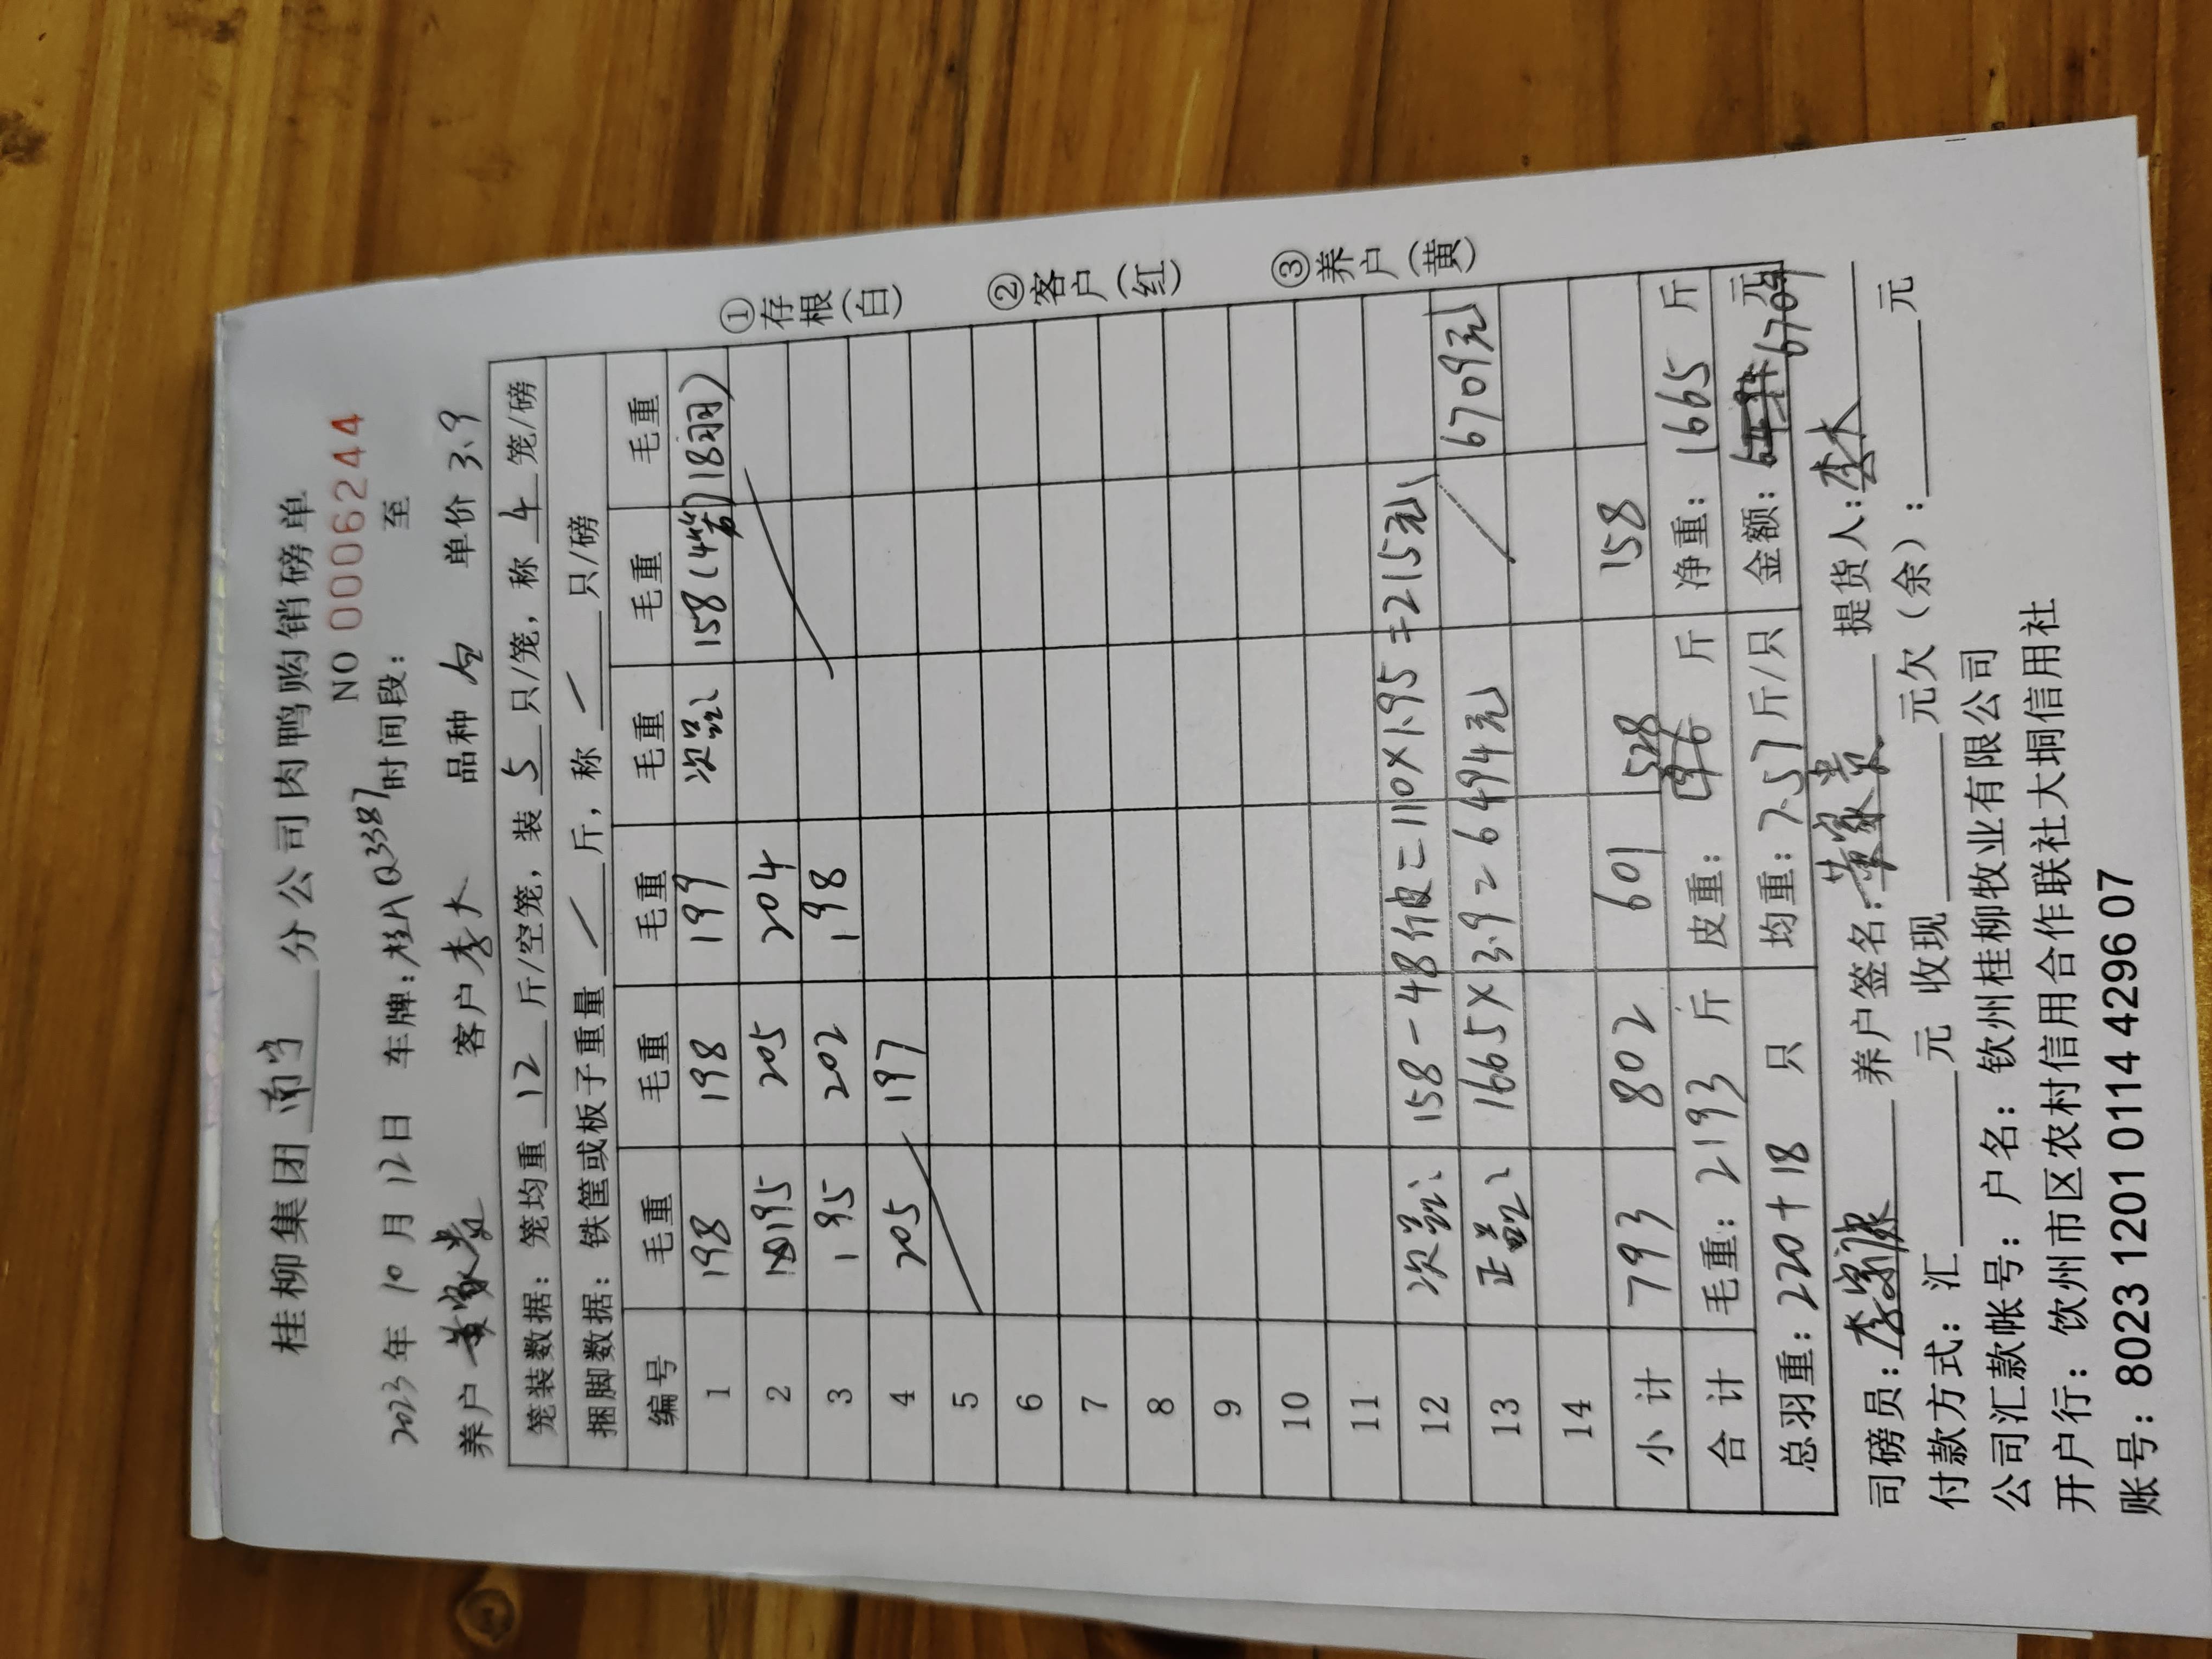 桂柳集团 南宁 分公司肉鸭购销磅单
NO 0006244
2023年 10月 12日 车牌: 桂AQ3387 时间段: 至
养户 黄家崇 客户 李大 品种 白 单价 3.9
笼装数据: 笼均重 12 斤/空笼, 装 5 只/笼, 称 4 笼/磅
捆脚数据: 铁筐或板子重量 / 斤, 称 / 只/磅
编号 毛重 毛重 毛重 毛重 毛重 毛重
1 198 198 199 次品: 158 (4笼) 18羽)
2 195 205 204
3 195 202 198
4 205 197
5
6
7
8
9
10
11
12 次品: 158-48皮=110×1.95=215元
13 正品: 1665×3.9=6494元 6709元
14
小计 793 802 601 528 158
合计 毛重: 2193 斤 皮重: 斤 净重: 1665 斤
总羽重: 220+18 只 均重: 7.57斤/只 金额: 6709 元
司磅员: 养户签名: 黄家崇 提货人: 李大
付款方式: 汇 元 收现 元欠(余): 元
公司汇款帐号: 户名: 钦州桂柳牧业有限公司
开户行: 钦州市区农村信用合作联社大垌信用社
账号: 8023 1201 0114 4296 07
①存根(白)
②客户(红)
③养户(黄)